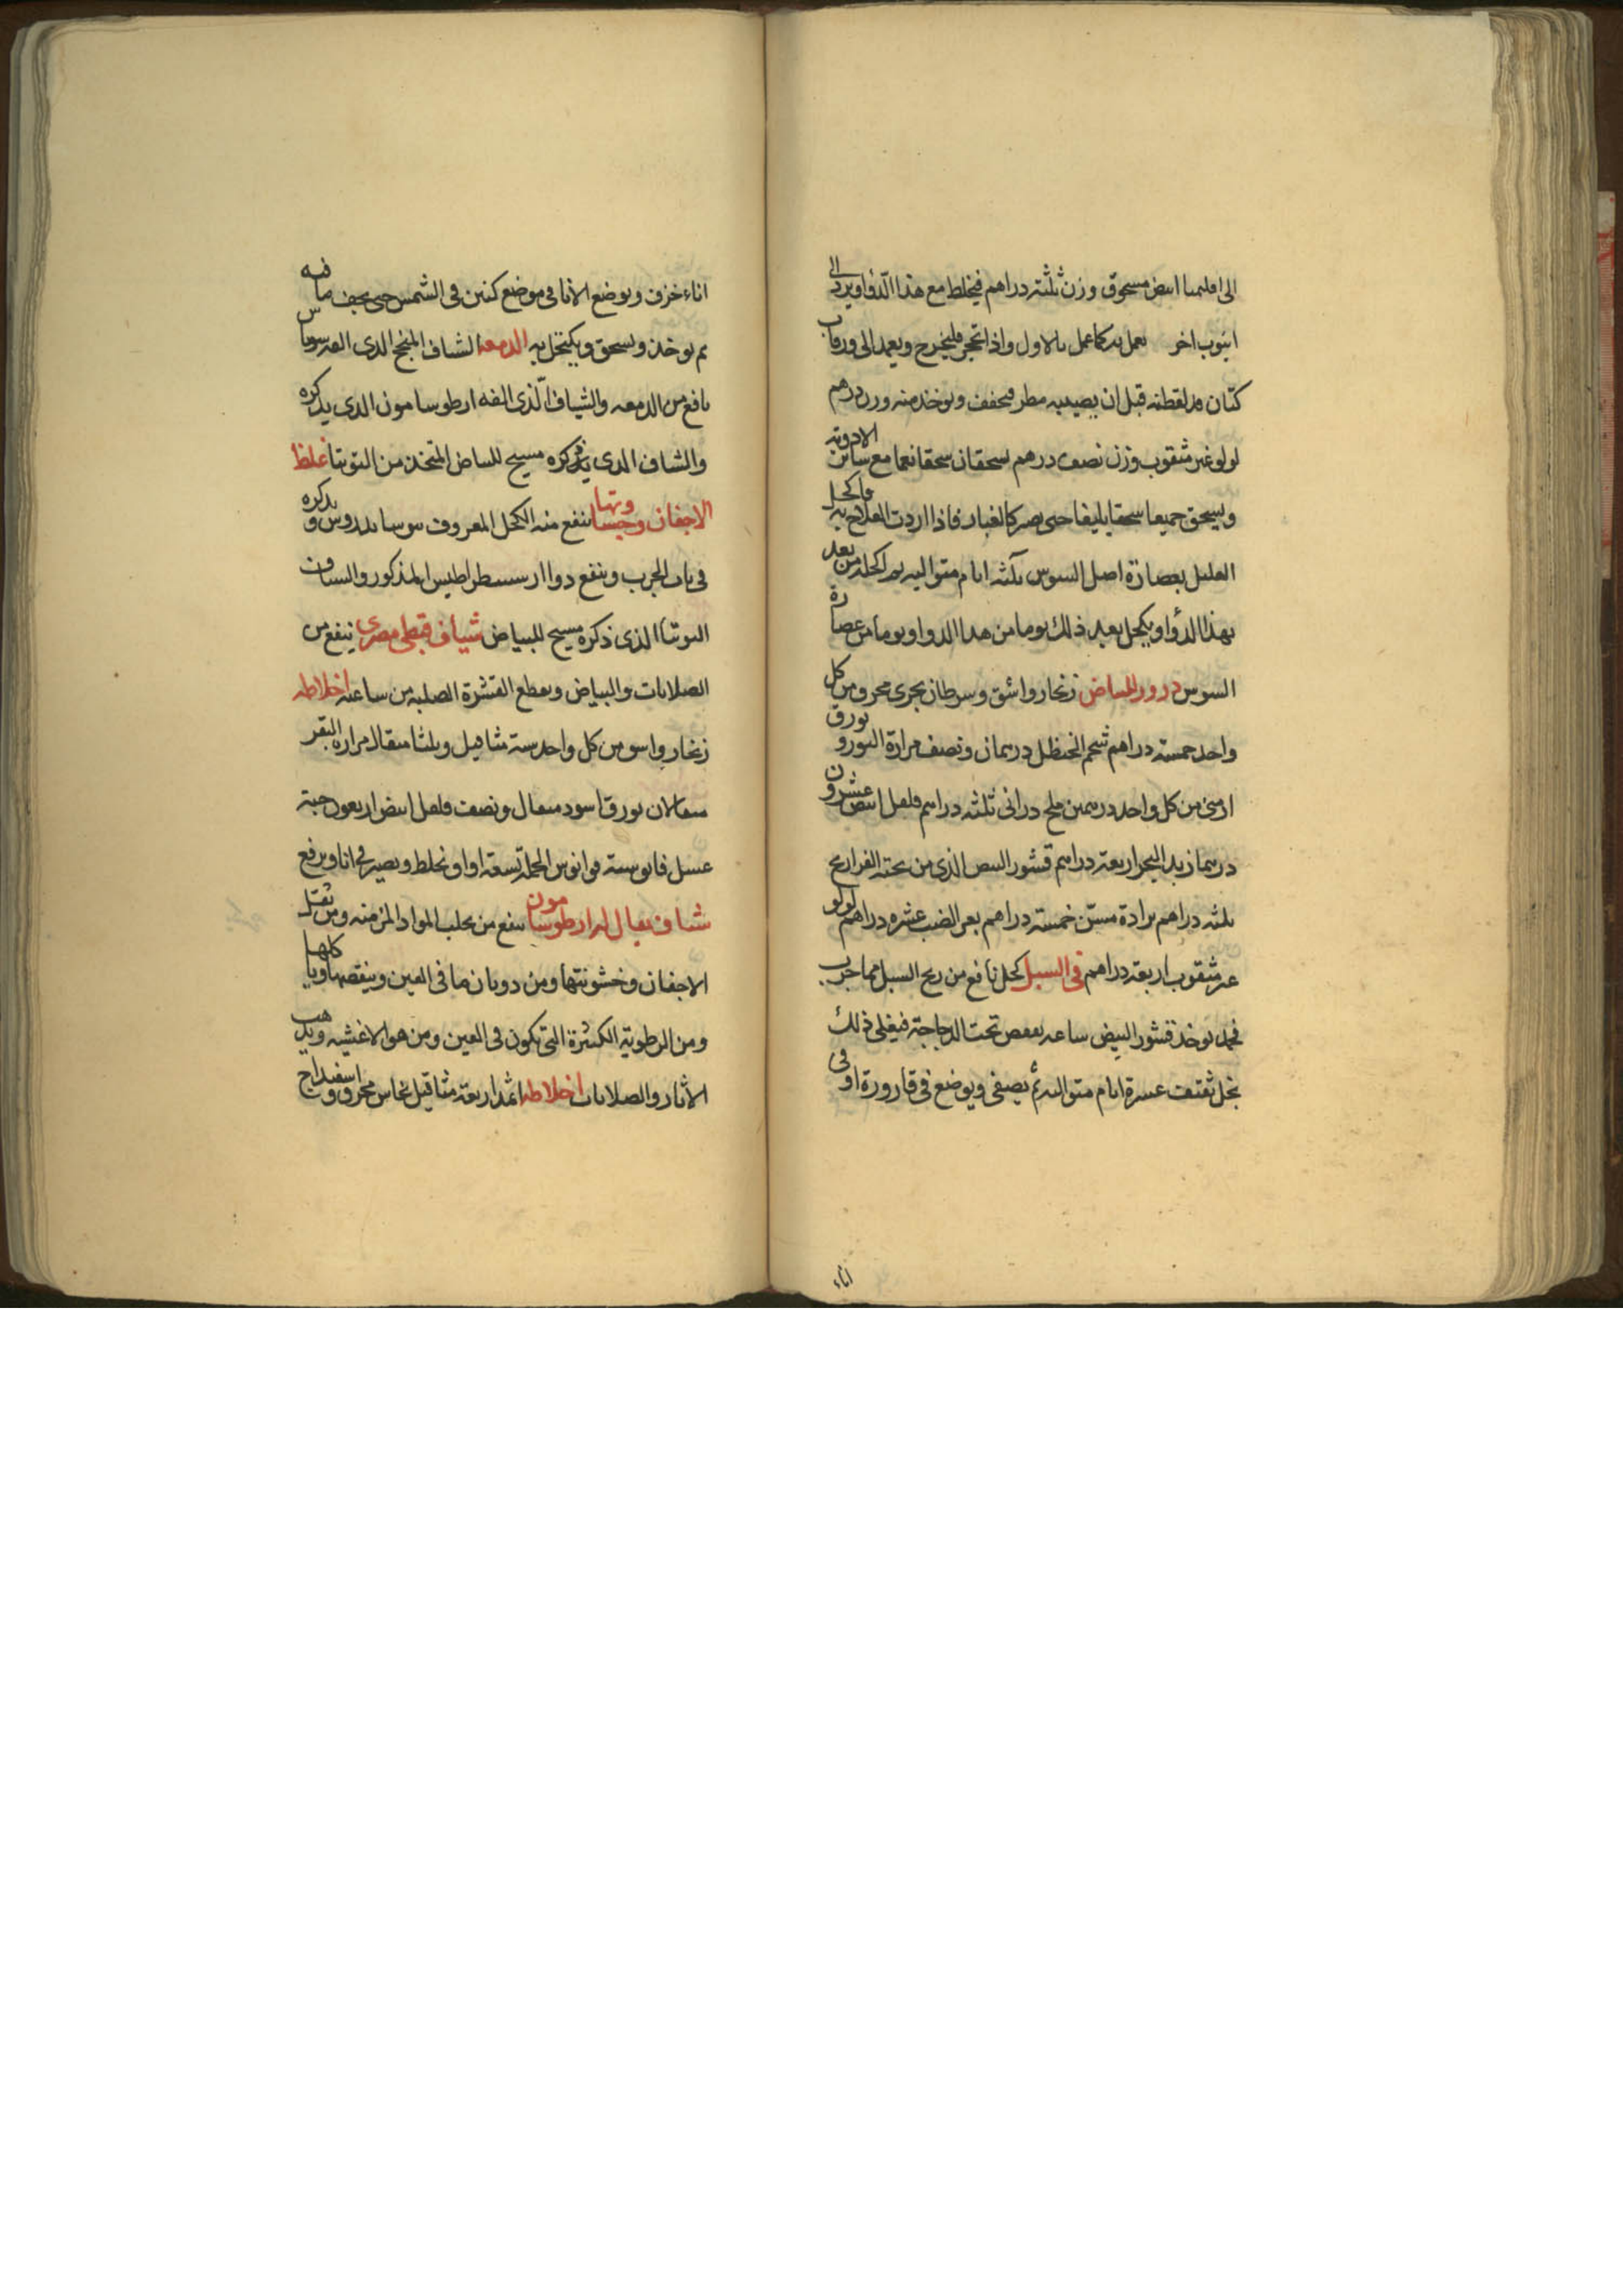 الى اقليميا ابيض مسحوق وزن ثلثة دراهم فيخلط مع هذا الدوا ويرد الى
انبوب اخر يعمل به كما عمل بالاول واذا تحجر فليخرج ويعمد الى ورق
كتان قد لقطته قبل ان يصيبه مطر فيجفف ويوخذ منه وزن درهم
لولو غير مثقوب وزن نصف درهم يسحقان سحقا نعما مع ساير الادوية
ويسحق جميعا سحقا بليغا حتى يصير كالغبار فاذا اردت العلاج به فاكحل
العليل بعصارة اصل السوس ثلثه ايام متواليه ثم اكحله من بعد
بهذا الدوا ويكحل بعد ذلك يوما من هذا الدوا ويوما من عصارة
السوس درور للبياض زنجار واشق وسرطان بحرى محرق من كل
واحد خمسة دراهم شحم الحنظل درهمان ونصف مرارة الثور وبورق
ارمنى من كل واحد درهمين ملح درانى ثلثه دراهم فلفل ابيض عشرون
درهما زبد البحر اربعة دراهم قشور البيض الذى من تحته الفراريج
ثلثه دراهم برادة مسن خمسة دراهم بعر الضب عشره دراهم لولو
غير مثقوب اربعة دراهم فى السبل كحل نافع من ريح السبل مما جرب
فحمد يوخذ قشور البيض ساعه تحت الدجاجة فيغلى ذلك
بخل ثقيف عشرة ايام متواليه ثم يصفى ويوضع فى قارورة او فى
اناء
اناء خزف ويوضع الانا فى موضع كنين فى الشمس حتى يجف ما فيه
ثم يوخذ ويسحق ويكتحل به الدمعه الشياف المنجح الذى الفه
نافع من الدمعه والشياف الذى الفه ارطوسامون الذى يذكره
والشياف الذى يذكره مسيح للبياض المتخذ من التوتيا غلظ
الاجفان وخشونتها ينفع منه الكحل المعروف يذكره
فى باب الجرب وينفع دوا ارسسطراطيس المذكور والشياف
التوتيا الذى ذكره مسيح للبياض شياف قبطى مصرى ينفع من
الصلابات والبياض ويقطع القشرة الصلبه من ساعته اخلاطه
زنجار واشق من كل واحد ستة مثاقيل وثلثا مثقال مرارة البقر
مثقالان بورق اسود مثقال ونصف فلفل ابيض اربعون حبة
عسل فايق ستة اواق الجملة تسعة اواق يخلط ويصير فى انا ويرفع
شياف يقال له ارطوسامون ينفع من تحلب المواد المزمنه ومن ثقل
الاجفان وخشونتها ومن ذوبان ما فى العين وينقصها وباكلها
ومن الرطوبة الكثيرة التى تكون فى العين ومن هو الاغشيه ويذهب
الاثار والصلابات اخلاطه اثمد اربعة مثاقيل نحاس محرق واسفيداج